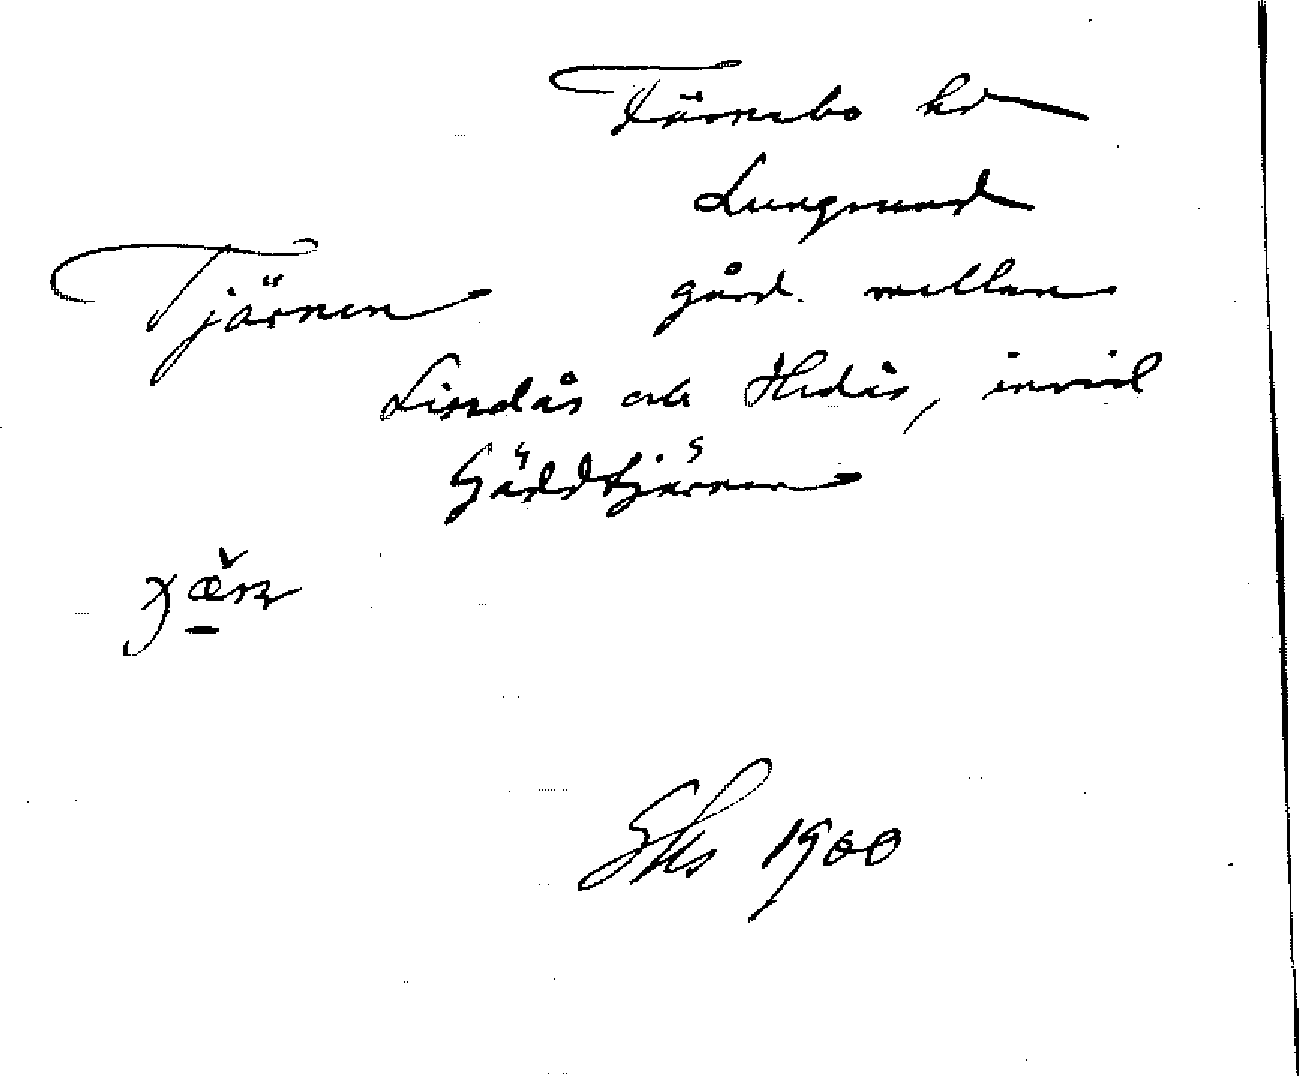 Färnebo hd
Lungsund
Tjärnen gård. mellan
Lindås och Hedås, invid
Gäddtjärnen
1900